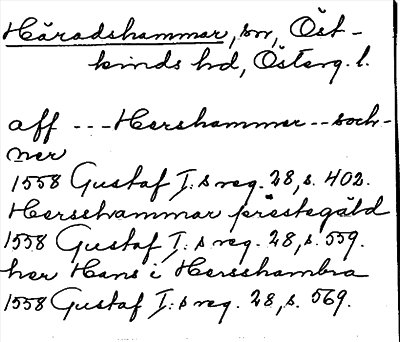 Häradshammar, sn, Öst-
kinds hd, Österg. l.
aff --- Hershammer -- soch-
ner
1558 Gustaf I:s reg. 28, s. 402.
Hersshammar prestegäld
1558 Gustaf I:s reg. 28, s. 559.
her Hans i Hersshambra
1558 Gustaf I:s reg. 28, s. 569.